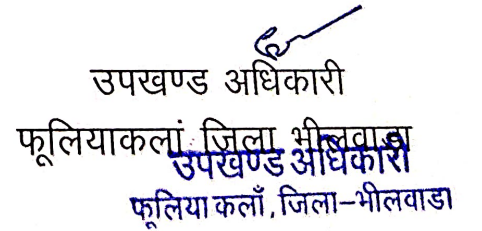 उपखण्ड अधिकारी
फूलियाकलां जिला भीलवाडा
उपखण्ड अधिकारी
फूलिया कलाँ, जिला-भीलवाडा